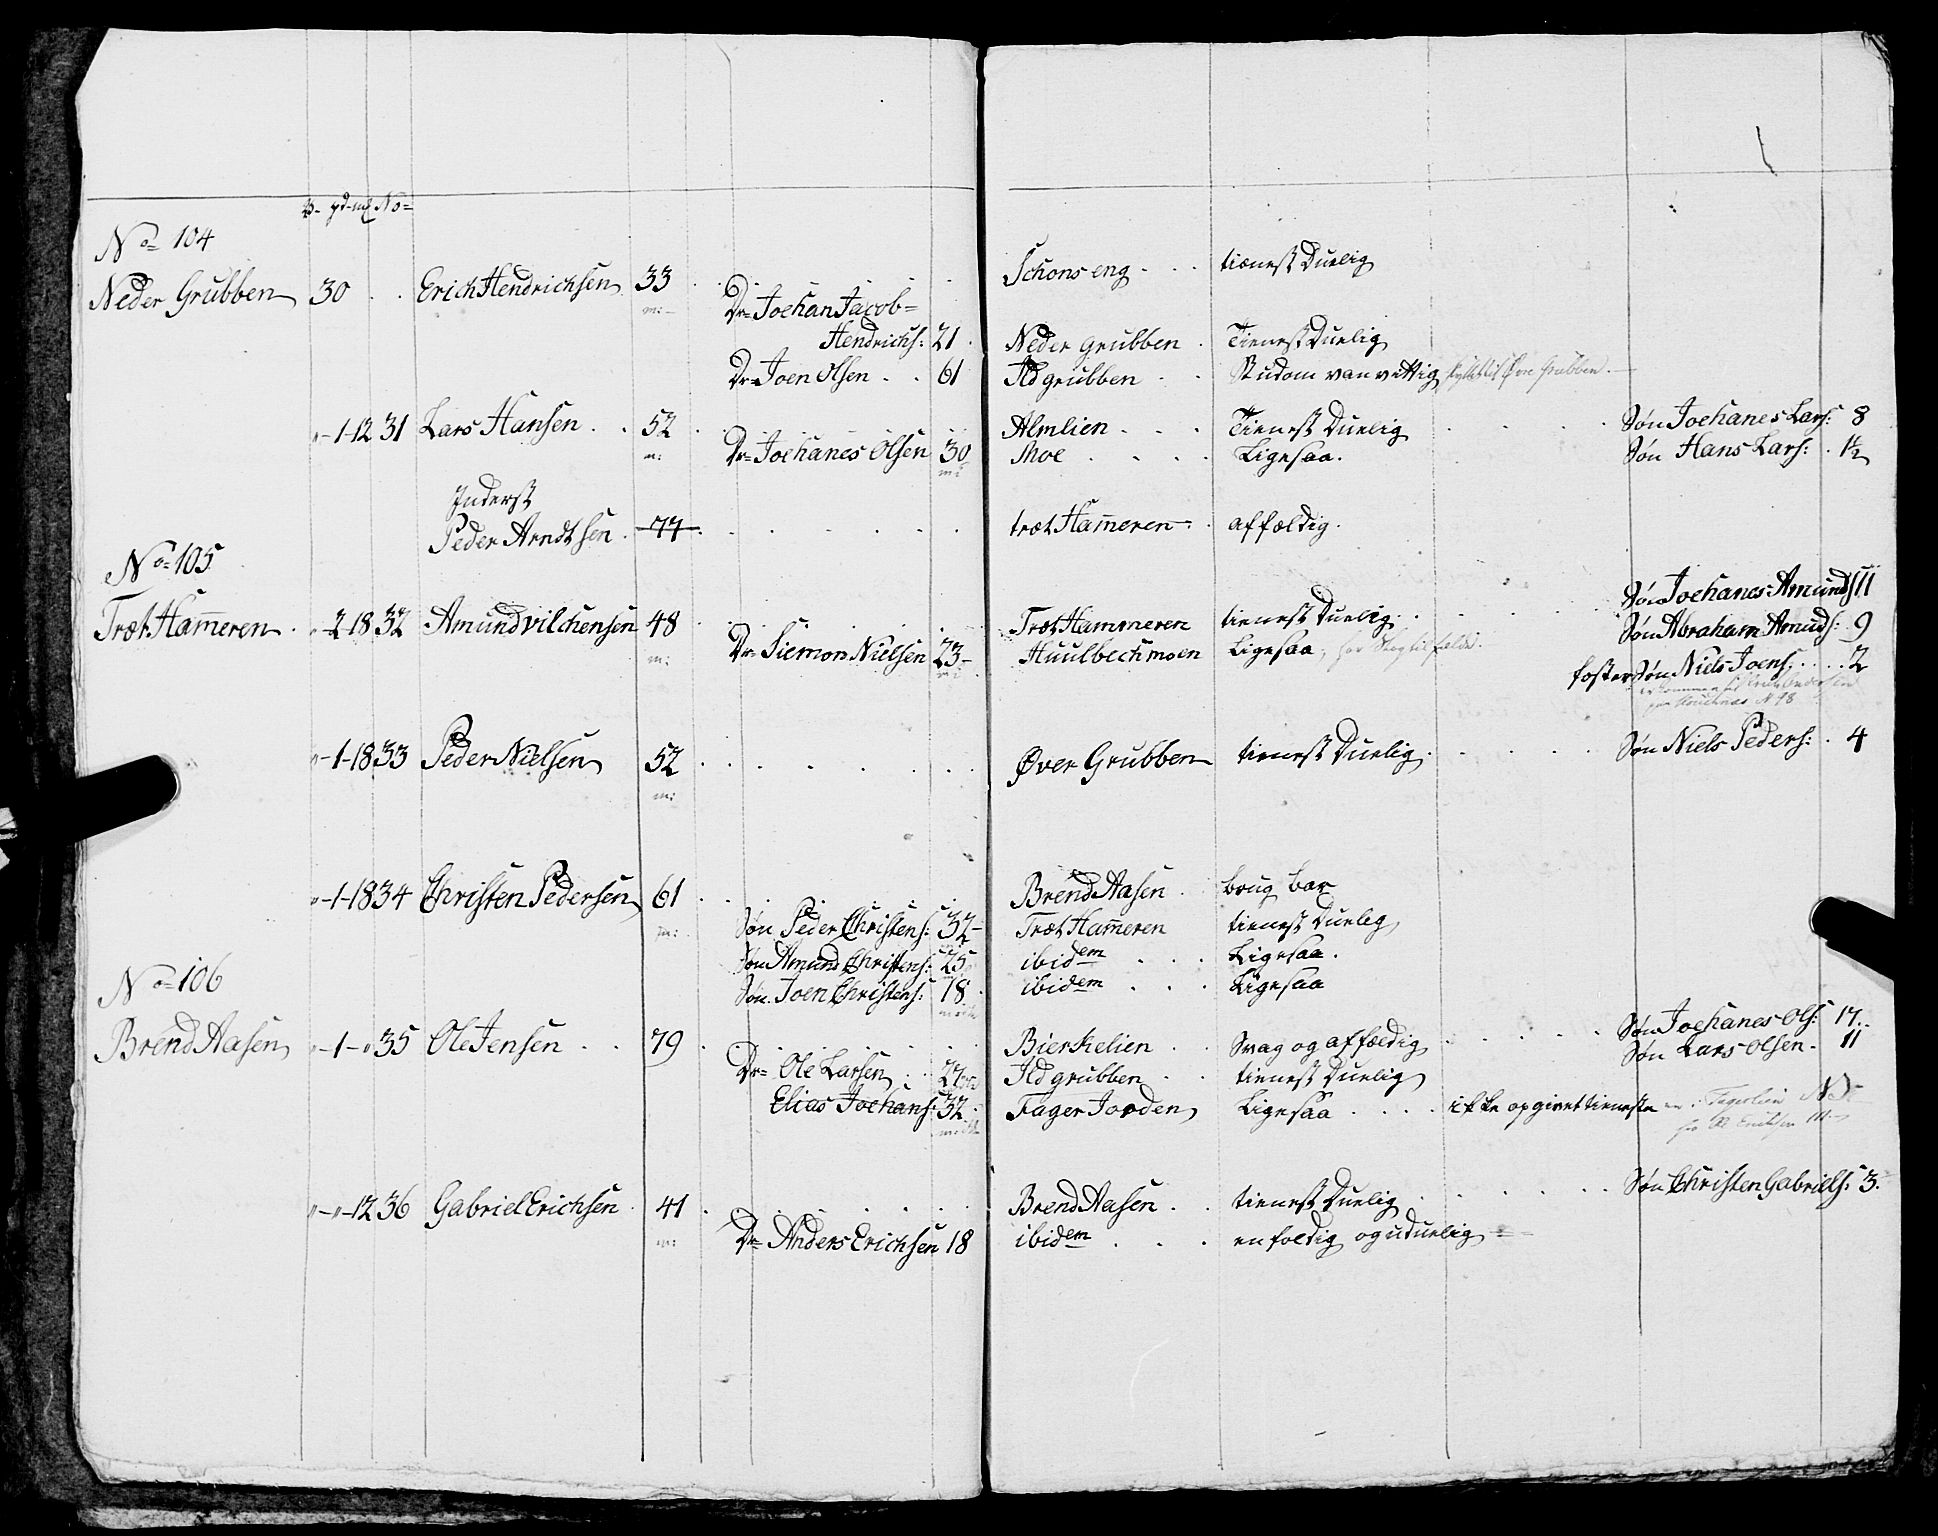 V- pd-mk No=
No= 104
Neder Grubben 30 . . Erich Hendrichsen 33 . . . . . . . Schons eng . . . tienest Duelig
m:
Dr= Joehan Jacob=
Hendrichs: 21 . Neder Grubben . Tienest Duelig
Dr= Joen Olsen . . 61 Ild grubben . . Studom vanvittig
"-1-12 31 Lars Hansen . . 52 . . . . . . Almlien . . . Tienest Duelig . . . . Søn Joehanes Lars: 8
m: Dr= Joehanes Olsen 30 Moe . . . . Ligesaa. Søn Hans Lars: . 1½
Inderst
Peder Arndtsen . 77 . . . . . . træt Ham̄eren . . affældig.
No= 105
Træt Ham̄eren . "-2-18 32 Amund vilchensen 48 . . . . . . Træt Hammeren tienest Duelig . . . . Søn Joehanes Amunds 11
Søn Abraham Amuds: 9
m: Dr= Siemon Nielsen 23- Huulbechmoen Ligesaa,
foster Søn Niels Joens: . . . . 2
"-1-18 33 Peder Nielsen 52 . . . . . . . Øver Grubben tienest Duelig . . . . . Søn Niels Peders: . 4
m:
"-1-18 34 Christen Pedersen 61 . . . . . . Brend Aasen . brug bar
Søn Peder Christens: 32- Træt Ham̄eren tienest Duelig
Søn Amund Christens: 25 ibidem . . . Ligesaa.
Søn. Joen Christens: 18 . ibidem . . . Ligesaa
No= 106
Brend Aasen "-1-" 35 Ole Jensen . . 79 . . . . . . Bierkelien . . Svag og affældig . . . . . Søn Joehanes Ols: 17..
Søn Lars Olsen . 11
Dr= Ole Larsen . . 22 Ild grubben . . tienest Duelig
Elias Joehans: 32 . Fager Jorden Ligesaa . . . . ikke opgivet tieneste
"-"-12 36 Gabriel Erichsen . 41 . . . . . . Brend Aasen . . tienest Duelig . . . . . . Søn Christen Gabriels: 3.
m: Dr= Anders Erichsen 18 ibidem . . . enfoldig og uduelig =